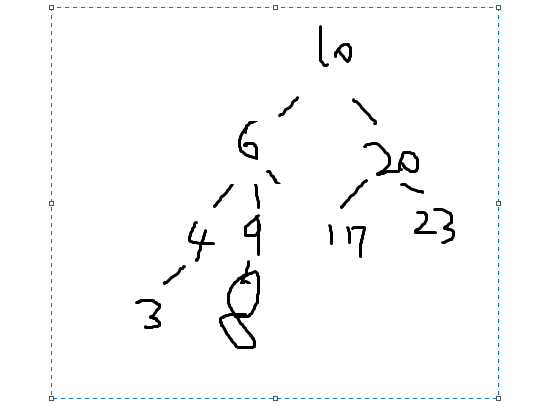 10
6 20
4 9 17 23
3 8